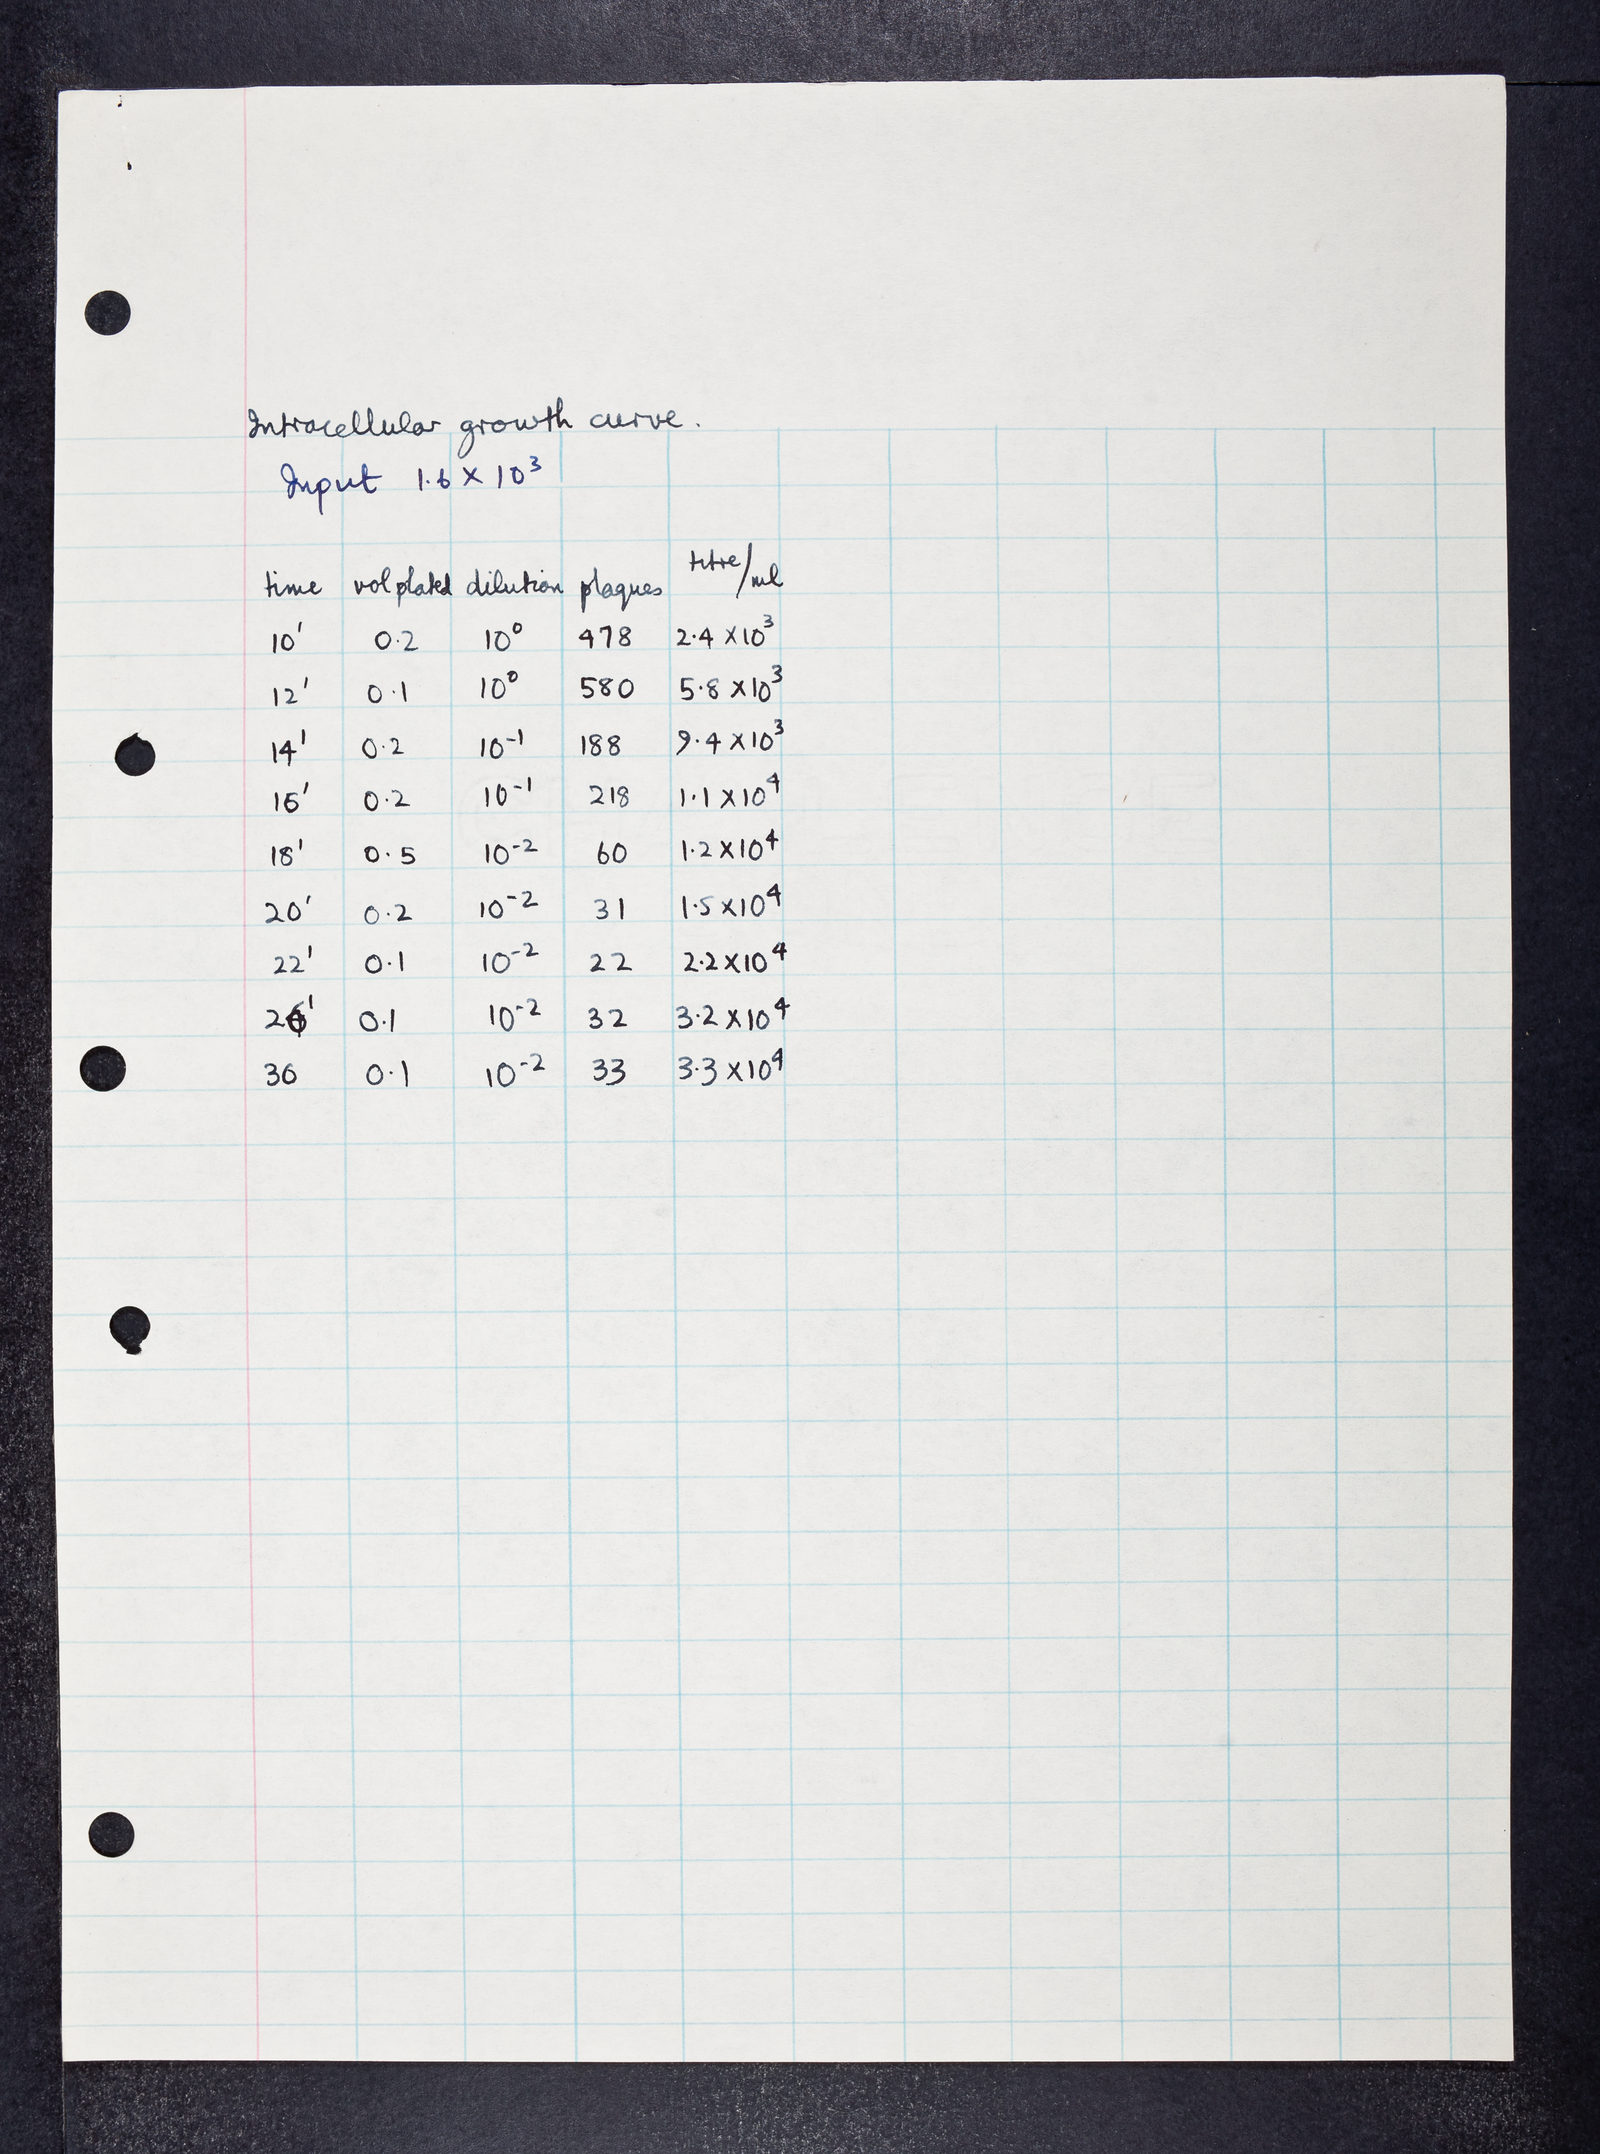 Intracellular growth curve.
Input 1.6 × 10³
time vol plated dilution plaques titre/ml
10' 0.2 10⁰ 478 2.4 ×10³
12' 0.1 10⁰ 580 5.8 ×10³
14' 0.2 10⁻¹ 188 9.4 ×10³
16' 0.2 10⁻¹ 218 1.1 ×10⁴
18' 0.5 10⁻² 60 1.2 ×10⁴
20' 0.2 10⁻² 31 1.5 ×10⁴
22' 0.1 10⁻² 22 2.2 ×10⁴
26' 0.1 10⁻² 32 3.2 ×10⁴
30 0.1 10⁻² 33 3.3 ×10⁴